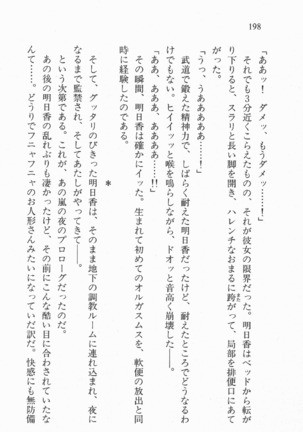 198
「ああッ！　ダメッ、もうダメッ……！」
　それでも３分近くこらえたものの、それが彼女の限界だった。明日香はベッドから転が
り下りると、スラリと長い脚を開き、ハレンチなおまるに跨がって、局部を排便口にあて
がった。
「うっ、うああああ……！」
　武道で鍛えた精神力で、しばらく耐えた明日香だったけど、耐えたところでどうなるわ
けでもない。ヒイイッと喉を鳴らしながら、ドオッと音高く崩壊した――。
「ああ、ああああ、ああああ……!!」
　その瞬間、明日香は確かにイッた。生まれて初めてのオルガスムスを、軟便の放出と同
時に経験したのである。
＊
　そして、グッタリのびきった明日香は、そのまま地下の調教ルームに連れ込まれ、夜に
なるまで監禁され、そしてあたしがやってきて――。
　という次第である。これが、あの嵐の夜のプロローグだったのだ。
　あの後の明日香の乱れぶりも凄かったけど、その前にこんな酷い目に合わされていたな
んて……。どうりでフニャフニャのお人形さんみたいになっていた訳だ。快感にも無防備